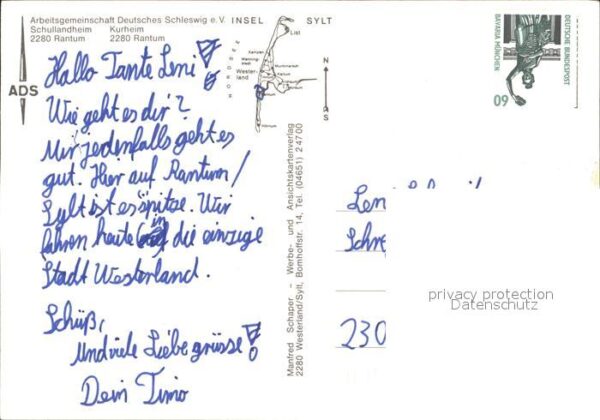 Arbeitsgemeinschaft Deutsches Schleswig e.V.
Schullandheim Kurheim
2280 Rantum 2280 Rantum
ADS
INSEL SYLT
List
Wester-
land
N
S
Hallo Tante Leni!
Wie geht es dir?
Mir jedenfalls geht es
gut. Hier auf Rantum/
Sylt ist es spitze. Wir
fahren heute in die einzige
Stadt Westerland.
Schüß,
Und viele Liebe grüsse!
Dein Timo
Manfred Schaper - Werbe- und Ansichtskartenverlag
2280 Westerland/Sylt, Bomhoffstr. 14, Tel. (04651) 24700
DEUTSCHE BUNDESPOST
BAVARIA MÜNCHEN
60
Len
Schre
230
privacy protection
Datenschutz